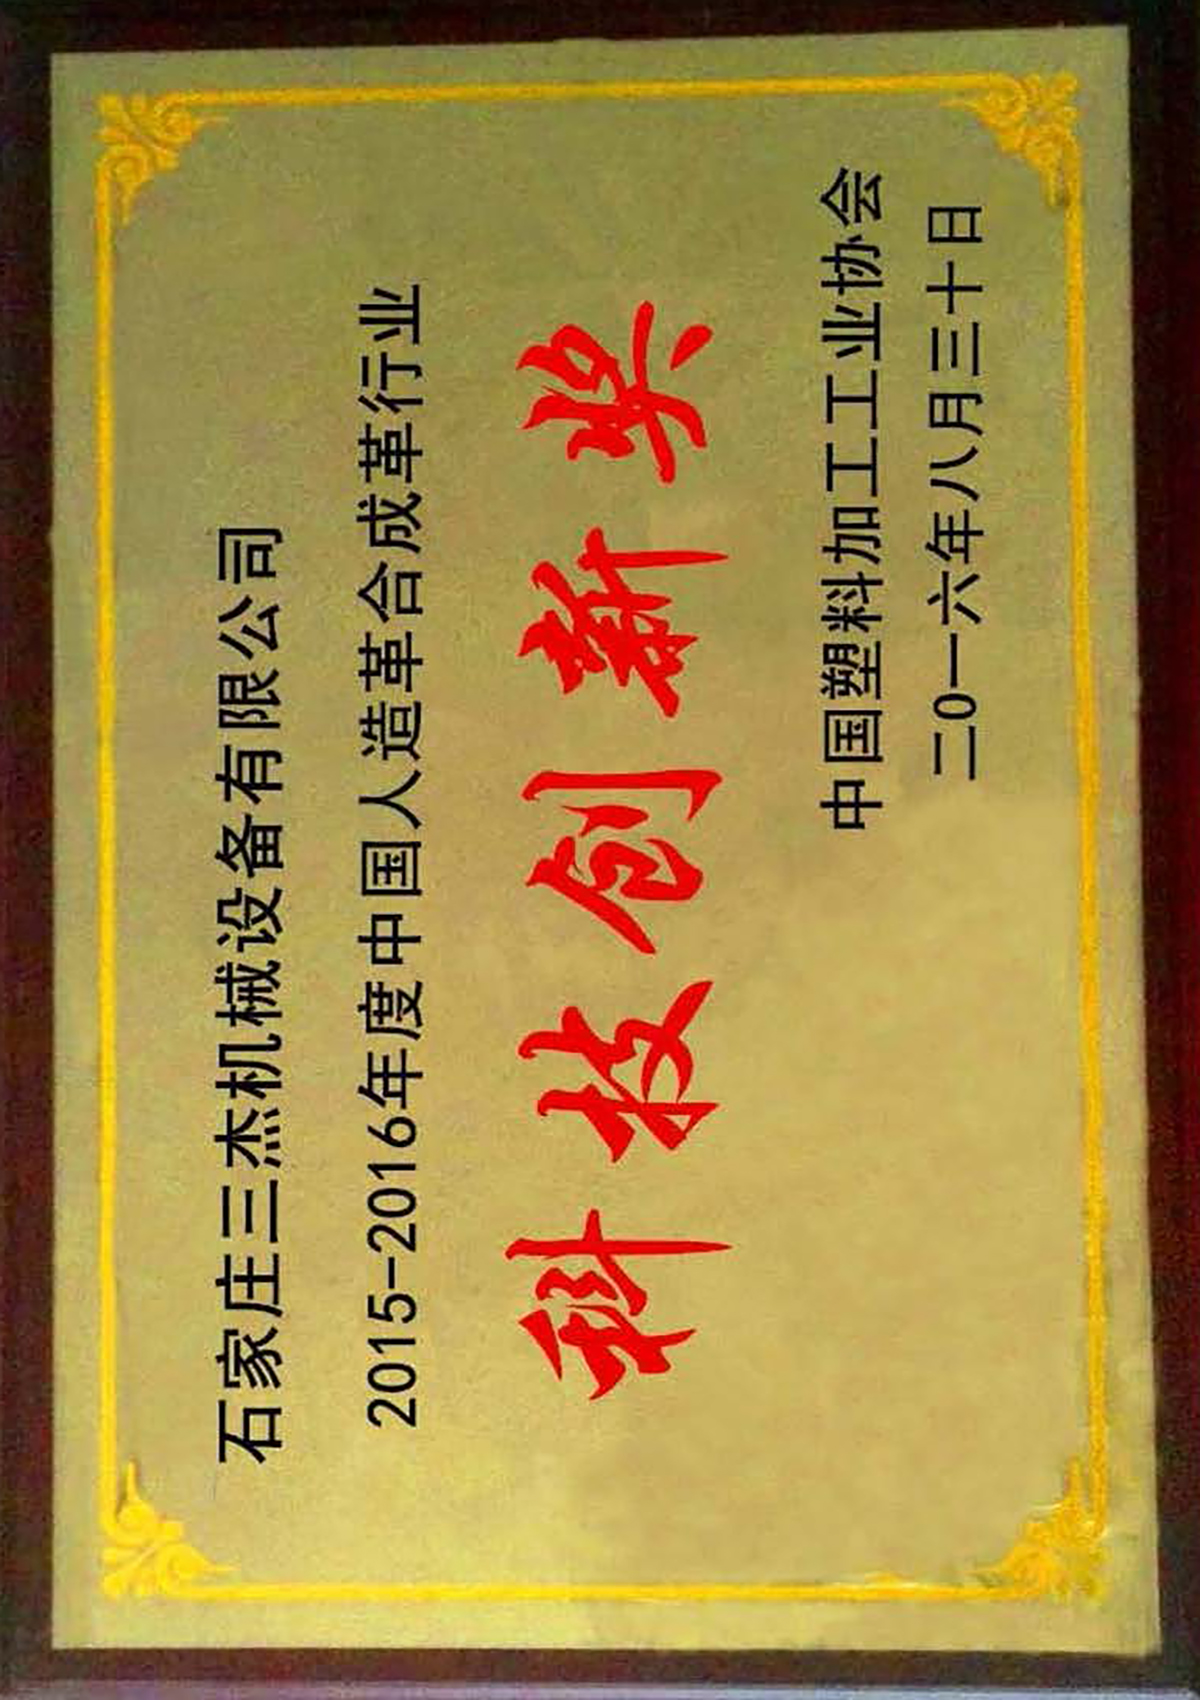 石家庄三杰机械设备有限公司
2015-2016年度中国人造革合成革行业
科技创新奖
中国塑料加工工业协会
二0一六年八月三十日